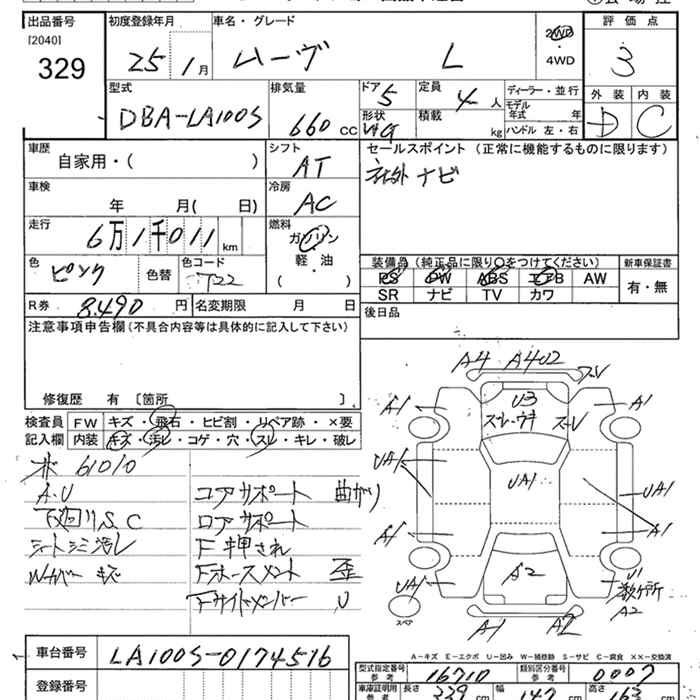 出品番号 初度登録年月 車名・グレード 評価点
[2040] 329 25年 1月 ムーヴ L 2WD・4WD 3
型式 排気量 ドア 5 定員 4人 ディーラー・並行 外装 内装
DBA-LA100S 660cc 形状 積載 kg モデル年式 年 D C
ハンドル 左・右
車歴 シフト セールスポイント (正常に機能するものに限ります)
自家用・( ) AT 社外ナビ
車検 冷房
年 月( 日) AC
走行 燃料
6万1千011km ガソリン
色 色コード 軽・油
ピンク 色替 T22 ( )
装備品 (純正品に限り〇をつけてください) 新車保証書
PS PW ABS エアB AW 有・無
SR ナビ TV カワ
R券 8,490円 名変期限 月 日 後日品
注意事項申告欄(不具合内容等は具体的に記入して下さい)
修復歴 有 〔箇所 〕
検査員 FW キズ・飛石・ヒビ割・リペア跡・×要
記入欄 内装 キズ・汚レ・コゲ・穴・スレ・キレ・破レ
61010
A.U コアサポート 曲がり
下廻りS.C ロアサポート
シートシミ汚レ F 押され
Wカバー キズ Fホースメント 歪
FサイドメンバーU
A4 A4U2
A1 U3 A1
UA1 UA1 UA1
A1 A1
UA1 A2 U1
数ヶ所
A2
スペア A1 A2
A-キズ E-エクボ U-凹み W-補修跡 S-サビ C-腐食 XX-交換済
車台番号 LA100S-0174516
登録番号
型式指定番号 参考 16710 類別区分番号 参考 0007
車庫証明用 参考 長さ 339cm 幅 147cm 高さ 163cm